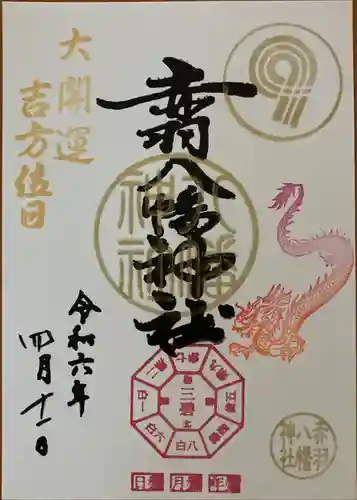 大開運
吉方位日
赤羽八幡神社
令和六年
四月十一日
八幡
神社
三碧
五黄
八白
六白
一白
赤羽
八幡
神社